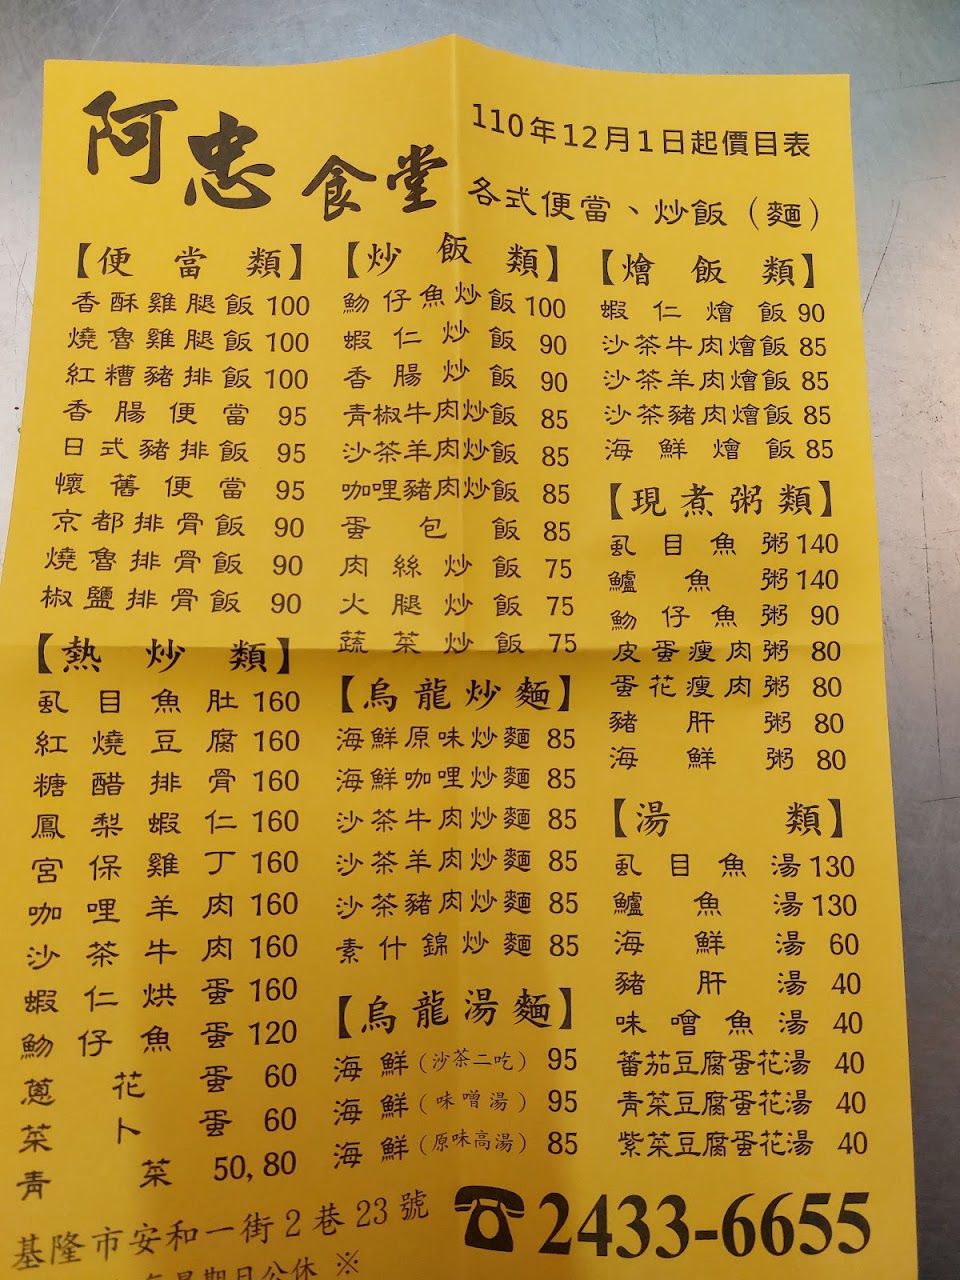 阿忠食堂
110年12月1日起價目表
各式便當、炒飯（麵）
【便當類】
香酥雞腿飯 100
燒魯雞腿飯 100
紅糟豬排飯 100
香腸便當 95
日式豬排飯 95
懷舊便當 95
京都排骨飯 90
燒魯排骨飯 90
椒鹽排骨飯 90
【熱炒類】
虱目魚肚 160
紅燒豆腐 160
糖醋排骨 160
鳳梨蝦仁 160
宮保雞丁 160
咖哩羊肉 160
沙茶牛肉 160
蝦仁烘蛋 160
魩仔魚蛋 120
蔥花蛋 60
菜卜蛋 60
青菜 50,80
【炒飯類】
魩仔魚炒飯 100
蝦仁炒飯 90
香腸炒飯 90
青椒牛肉炒飯 85
沙茶羊肉炒飯 85
咖哩豬肉炒飯 85
蛋包飯 85
肉絲炒飯 75
火腿炒飯 75
蔬菜炒飯 75
【烏龍炒麵】
海鮮原味炒麵 85
海鮮咖哩炒麵 85
沙茶牛肉炒麵 85
沙茶羊肉炒麵 85
沙茶豬肉炒麵 85
素什錦炒麵 85
【烏龍湯麵】
海鮮（沙茶二吃）95
海鮮（味噌湯）95
海鮮（原味高湯）85
【燴飯類】
蝦仁燴飯 90
沙茶牛肉燴飯 85
沙茶羊肉燴飯 85
沙茶豬肉燴飯 85
海鮮燴飯 85
【現煮粥類】
虱目魚粥 140
鱸魚粥 140
魩仔魚粥 90
皮蛋瘦肉粥 80
蛋花瘦肉粥 80
豬肝粥 80
海鮮粥 80
【湯類】
虱目魚湯 130
鱸魚湯 130
海鮮湯 60
豬肝湯 40
味噌魚湯 40
蕃茄豆腐蛋花湯 40
青菜豆腐蛋花湯 40
紫菜豆腐蛋花湯 40
基隆市安和一街2巷23號
☎2433-6655
每星期日公休 ※